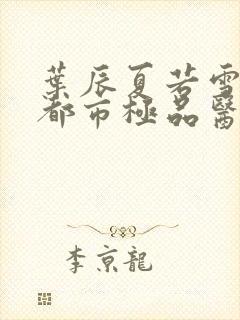 葉辰夏若雪
都市極品醫
李京龍